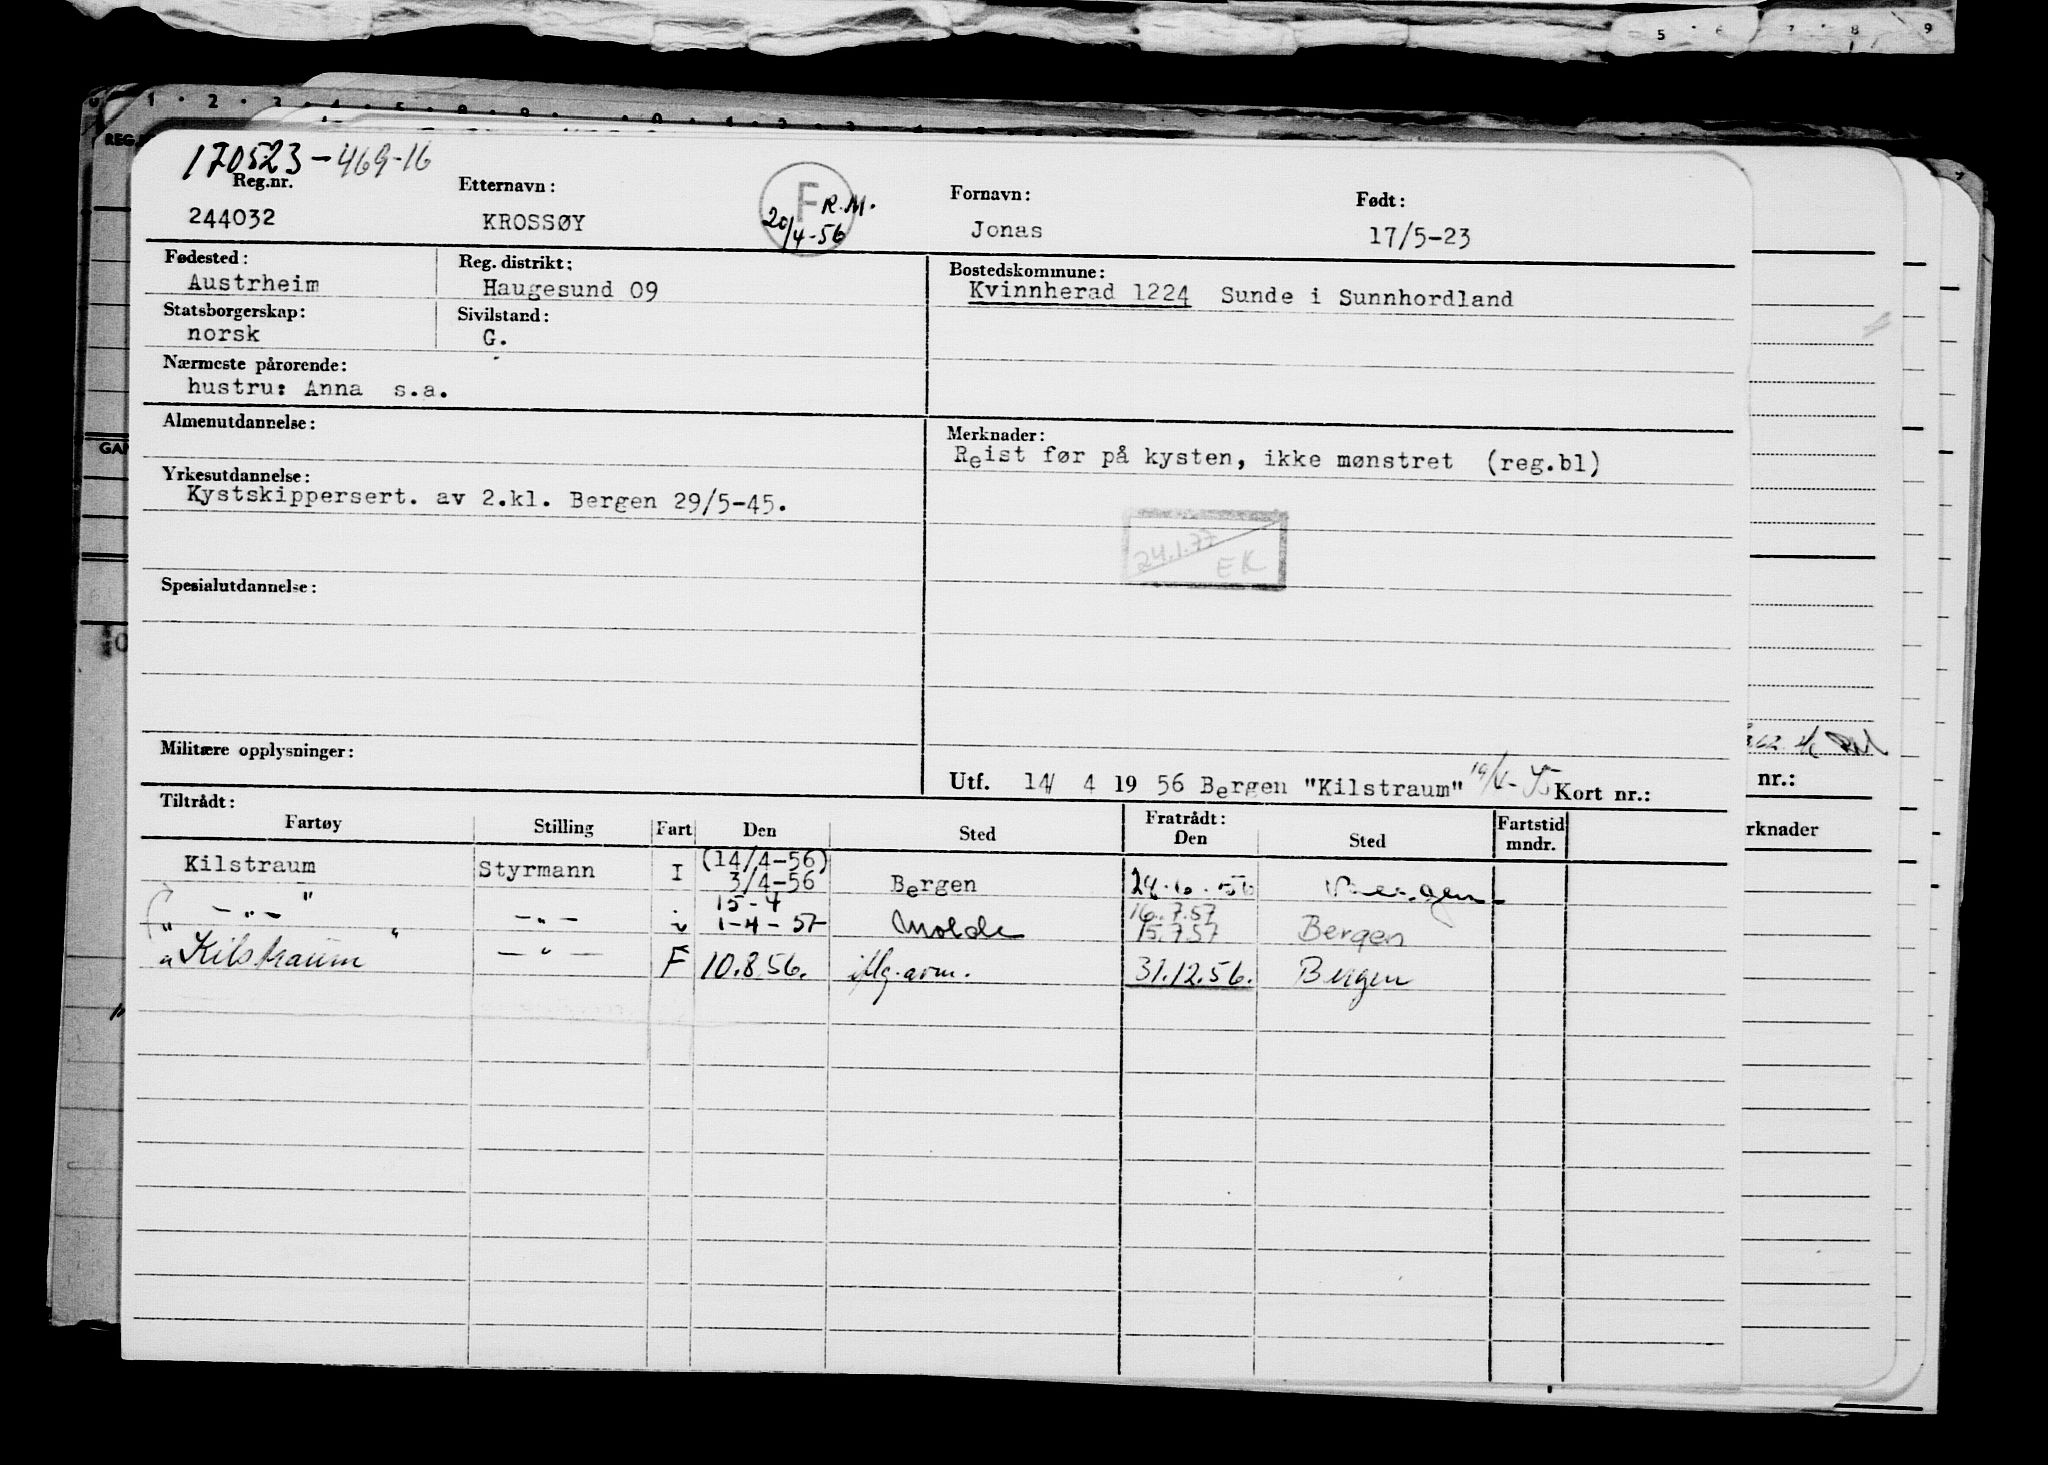 5 6 7 8 9
1 2 3 4 5
REG.
170523-469-16
Reg.nr. Etternavn: Fornavn: Født:
244032 KROSSØY F R.M. 20/4-56 Jonas 17/5-23
Fødested: Reg. distrikt: Bostedskommune:
Austrheim Haugesund 09 Kvinnherad 1224 Sunde i Sunnhordland
Statsborgerskap: Sivilstand:
norsk G.
Nærmeste pårørende:
hustru: Anna s.a.
Almenutdannelse: Merknader:
Reist før på kysten, ikke mønstret (reg.bl)
Yrkesutdannelse:
Kystskippersert. av 2.kl. Bergen 29/5-45.
24.1.77
EK
Spesialutdannelse:
Militære opplysninger:
Utf. 14/ 4 19 56 Bergen "Kilstraum" Kort nr.: nr.:
Tiltrådt: Fratrådt:
Fartøy Stilling Fart Den Sted Den Sted Fartstid mndr. rknader
Kilstraum Styrmann I (14/4-56)
3/4-56 Bergen
—"— " —"— 15-4
1-4-57 Molde 16.7.57
15.7.57 Bergen
" Kilstraum —"— F 10.8.56. 31.12.56. Bergen